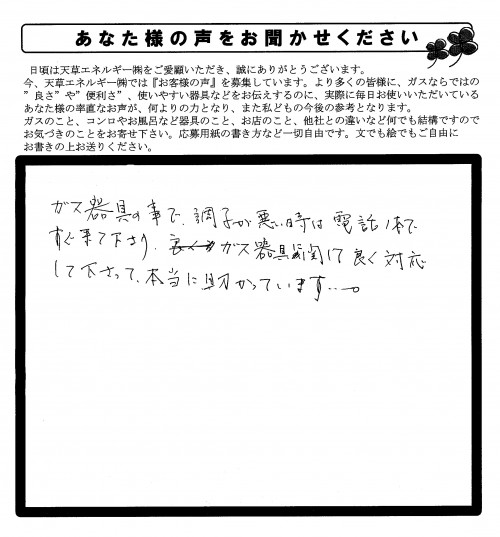 あなた様の声をお聞かせください
日頃は天草エネルギー㈱をご愛顧いただき、誠にありがとうございます。
今、天草エネルギー㈱では『お客様の声』を募集しています。より多くの皆様に、ガスならではの
”良さ”や”便利さ”、使いやすい器具などをお伝えするのに、実際に毎日お使いいただいている
あなた様の率直なお声が、何よりの力となり、また私どもの今後の参考となります。
ガスのこと、コンロやお風呂など器具のこと、お店のこと、他社との違いなど何でも結構ですので
お気づきのことをお寄せ下さい。応募用紙の書き方など一切自由です。文でも絵でもご自由に
お書きの上お送りください。
ガス器具の事で、調子が悪い時は電話1本で
すぐ来て下さり、ガス器具に関して良く対応
して下さって、本当に助かっています…。